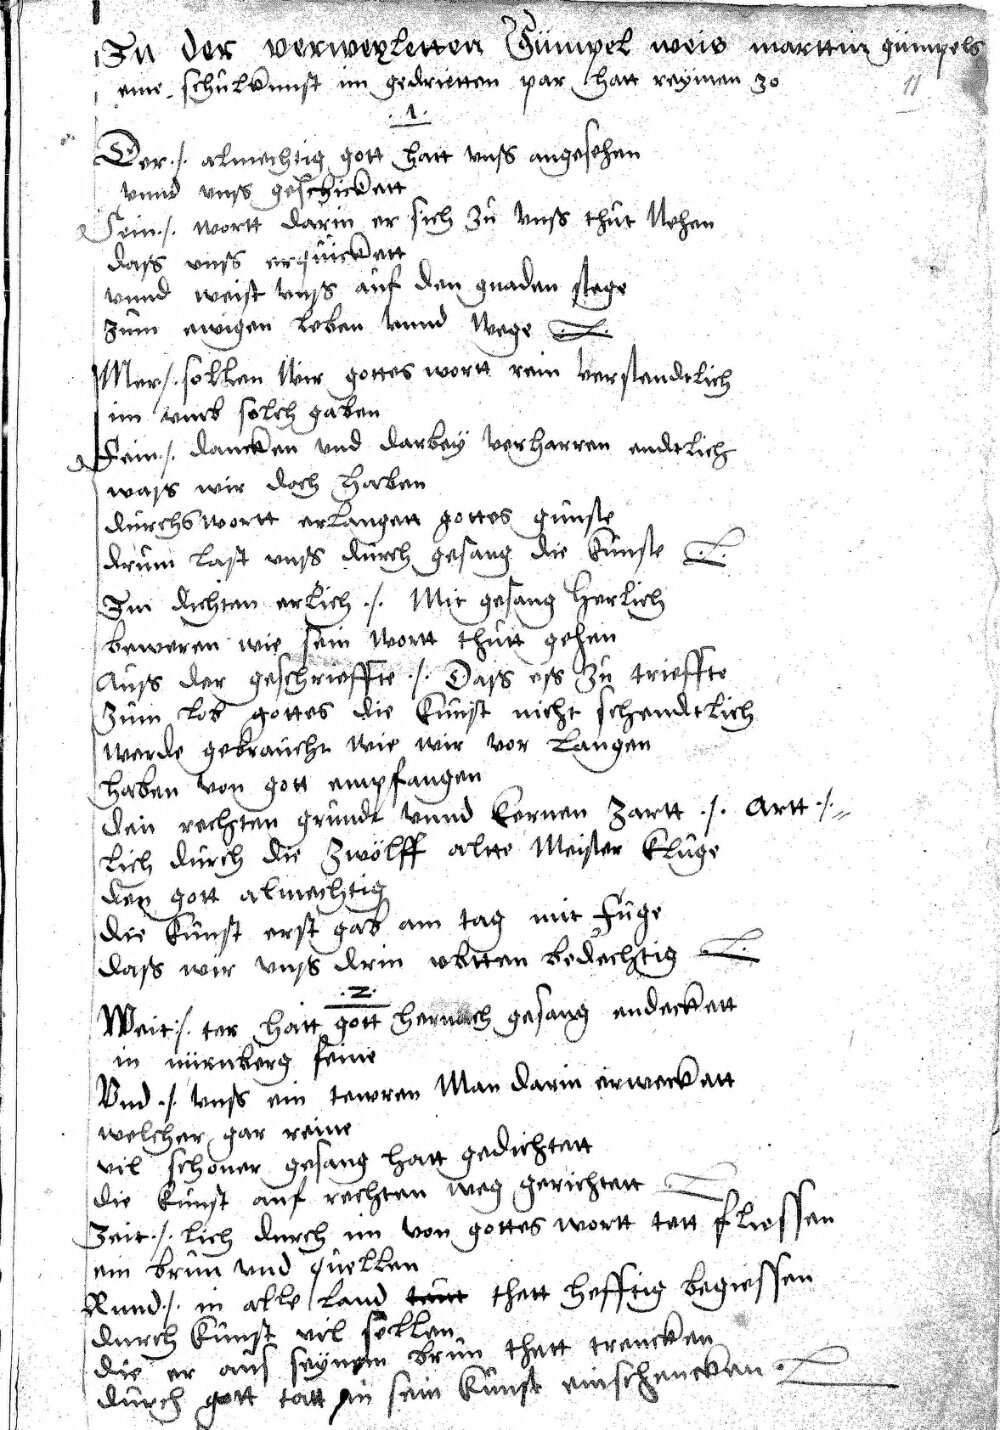 In der verweyletten Gümpel weis marttin gümpels
eine schulkunst im gedrietten par hatt reymen 30
11
.1.
Der ./. almechtig gott hatt unss angesehen
unnd unss geschickett
Sein ./. wortt darin er sich zu unss thut nehen
dass unss erquickett
unnd weist unss auf den gnaden stege
zum ewigen leben unnd wege
Mer ./. sollen wir gottes wortt rein verstendtlich
im umb solch gaben
Fein ./. dancken und darbey verharren endtlich
wass wir doch haben
durchs wortt erlangett gottes gunste
drum last unss durch gesang die kunste
Im dichten erlich ./. Mit gesang herlich
beweren wie sein wortt thutt gehen
Auss der geschrieffte ./. Dass ess zu trieffte
zum lob gottes die kunst nicht schendtlich
werde gebraucht wie wir vor langen
haben von gott empfangen
den rechten grundt unnd kernen zartt ./. Artt ./.
lich durch die zwölff altte Meister kluge
den gott almechtig
die kunst erst gab am tag mit fuge
dass wir unss drin ubtten bedechtig
.2.
Weit ./. ter hatt gott hernach gesang endeckett
in nürnberg feine
Und ./. unss ein tewren Man darin erweckett
welcher gar reine
vil schoner gesang hatt gedichtett
die kunst auf rechten weg gerichtett
Zeit ./. lich durch im von gottes wortt tett fliessen
ein brun und quellen
Rund ./. in alle land thett hefftig begiessen
durch kunst vil sellen
die er aus seynem brun thett trencken
durch gott tatt in sein kunst einschencken